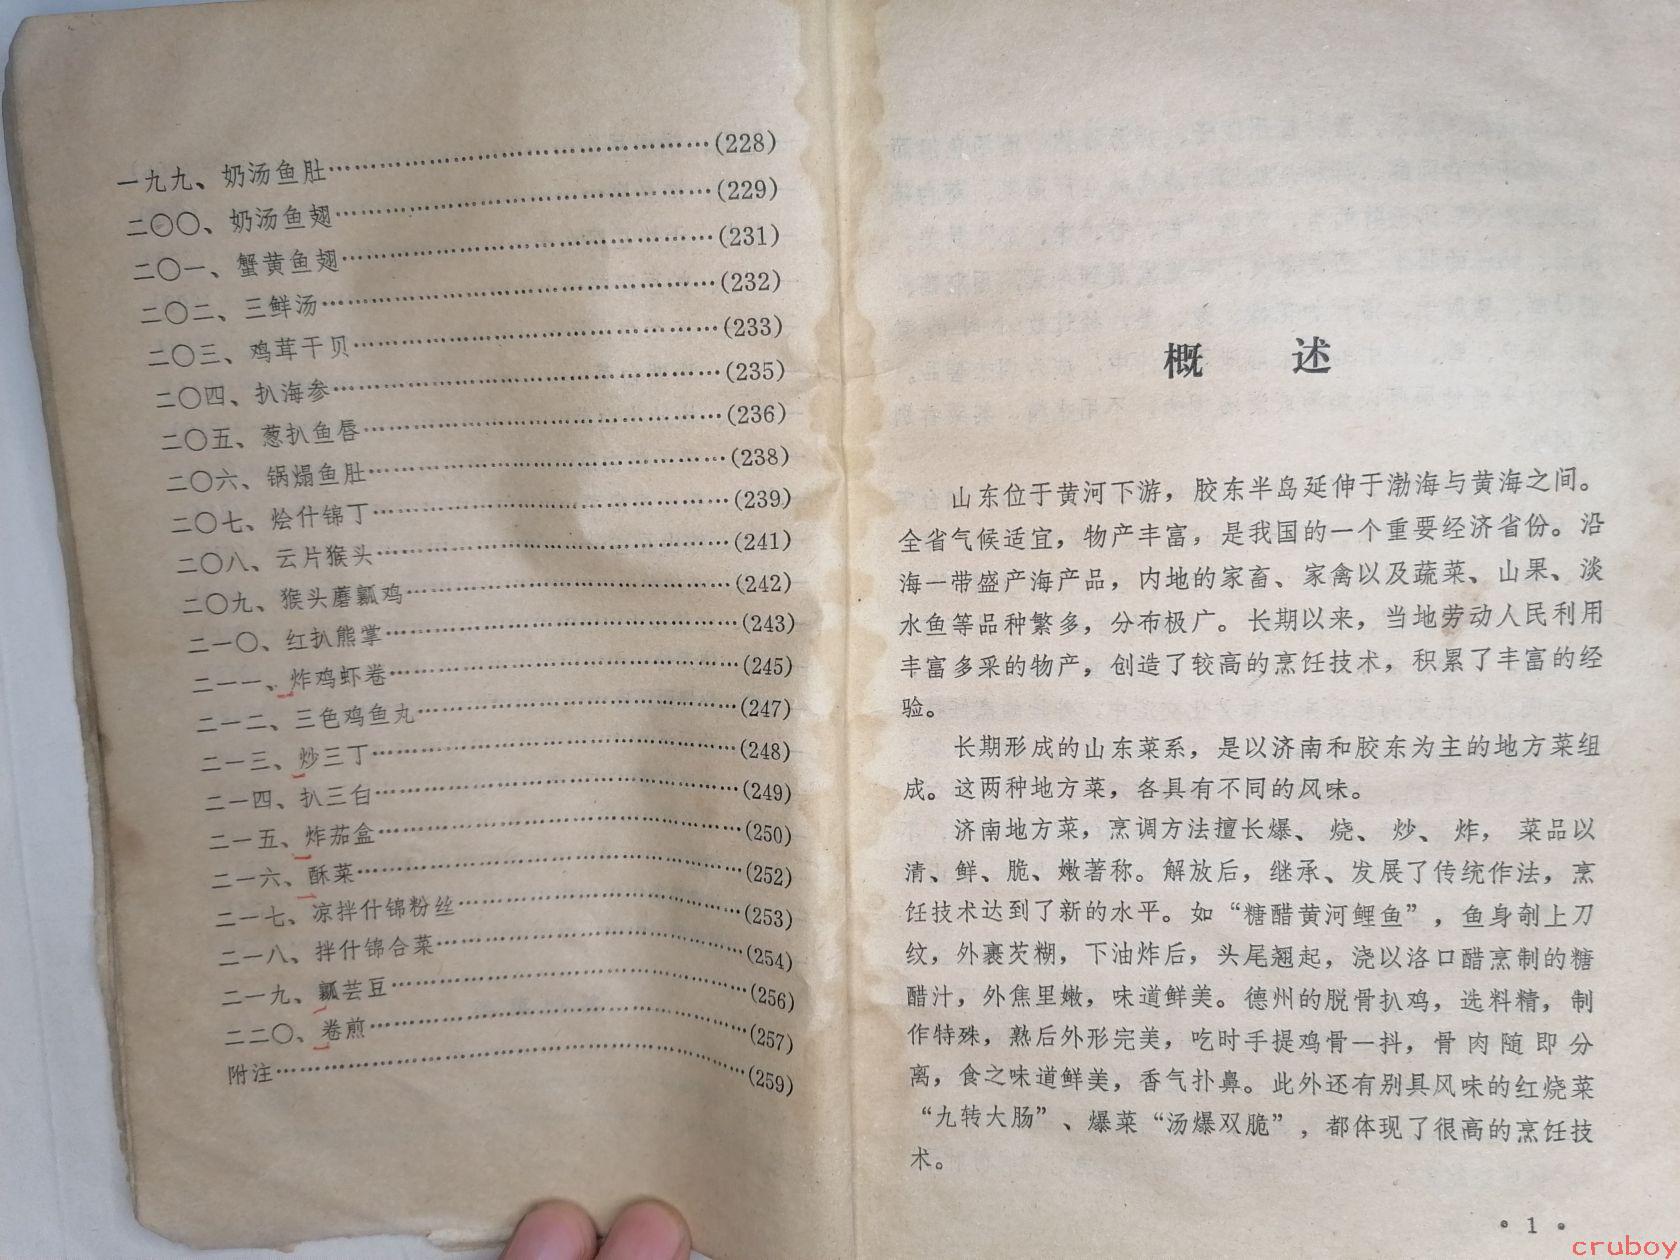 一九九、奶汤鱼肚……………………(228)
二〇〇、奶汤鱼翅……………………(229)
二〇一、蟹黄鱼翅……………………(231)
二〇二、三鲜汤……………………(232)
二〇三、鸡茸干贝……………………(233)
二〇四、扒海参……………………(235)
二〇五、葱扒鱼唇……………………(236)
二〇六、锅塌鱼肚……………………(238)
二〇七、烩什锦丁……………………(239)
二〇八、云片猴头……………………(241)
二〇九、猴头蘑瓤鸡……………………(242)
二一〇、红扒熊掌……………………(243)
二一一、炸鸡虾卷……………………(245)
二一二、三色鸡鱼丸……………………(247)
二一三、炒三丁……………………(248)
二一四、扒三白……………………(249)
二一五、炸茄盒……………………(250)
二一六、酥菜……………………(252)
二一七、凉拌什锦粉丝……………………(253)
二一八、拌什锦合菜……………………(254)
二一九、瓤芸豆……………………(256)
二二〇、卷煎……………………(257)
附注……………………(259)
概 述
山东位于黄河下游，胶东半岛延伸于渤海与黄海之间。
全省气候适宜，物产丰富，是我国的一个重要经济省份。沿
海一带盛产海产品，内地的家畜、家禽以及蔬菜、山果、淡
水鱼等品种繁多，分布极广。长期以来，当地劳动人民利用
丰富多采的物产，创造了较高的烹饪技术，积累了丰富的经
验。
长期形成的山东菜系，是以济南和胶东为主的地方菜组
成。这两种地方菜，各具有不同的风味。
济南地方菜，烹调方法擅长爆、烧、炒、炸，菜品以
清、鲜、脆、嫩著称。解放后，继承、发展了传统作法，烹
饪技术达到了新的水平。如“糖醋黄河鲤鱼”，鱼身剞上刀
纹，外裹芡糊，下油炸后，头尾翘起，浇以洛口醋烹制的糖
醋汁，外焦里嫩，味道鲜美。德州的脱骨扒鸡，选料精，制
作特殊，熟后外形完美，吃时手提鸡骨一抖，骨肉随即分
离，食之味道鲜美，香气扑鼻。此外还有别具风味的红烧菜
“九转大肠”、爆菜“汤爆双脆”，都体现了很高的烹饪技
术。
• 1 •
cruboy